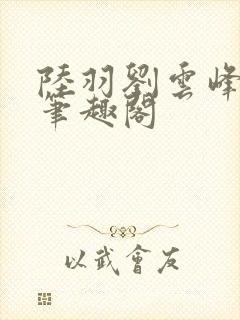 陸羽劉雲峰
筆趣閣
以武會友